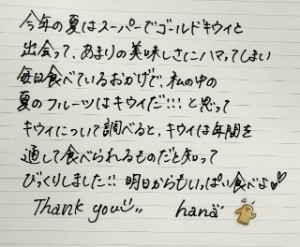 今年の夏はスーパーでゴールドキウイと
出会って、あまりの美味しさにハマってしまい
毎日食べているおかげで、私の中の
夏のフルーツはキウイだ!!!と思って
キウイについて調べると、キウイは年間を
通して食べられるものだと知って
びっくりしました!! 明日からもいっぱい食べよ♡
Thank you hana